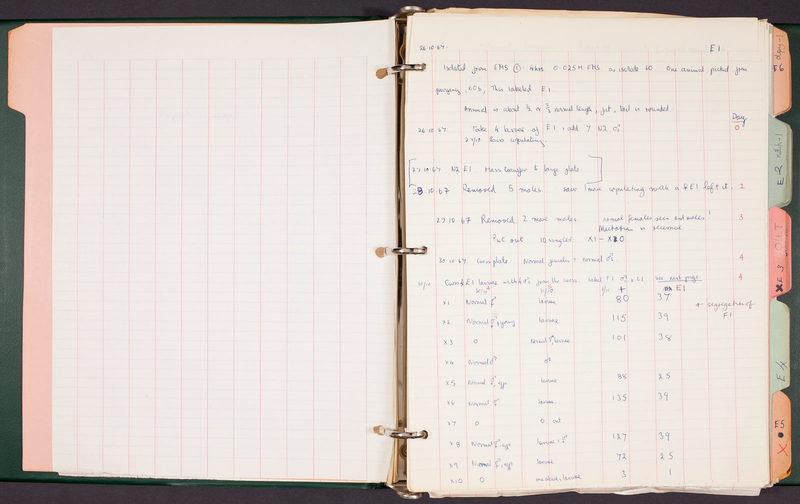 26.10.67. E1
Isolated from EMS ① 4hrs 0.025M EMS as isolate 60 One animal picked from
progeny. 60s, This labeled E1
Animal is about 1/2 or 2/3 normal length, fat, tail is rounded
Day
26.10.67 Take 4 larvae of E1, add 7 N2 ♂ 0
27/10 Saw copulating.
27.10.67 N2 E1 Mass transfer to large plate
28.10.67 Removed 5 males. saw 1 more copulating with a E1 left it. 2
29.10.67 Removed 2 more males normal females seen and males! 3
Mutation is recessive
Put out 10 singles. X1 - X10
30.10.67 Cross plate Normal females + normal ♂. 4
30/10 Cross E1 larvae with ♂ from the cross. see next page. 4
+ E1
x1 Normal larvae 80 37 + segregation of
x2 Normal, young larvae 115 39 E1
x3 0 Normal, larvae 101 38
x4 Normal ♂ ♂
x5 Normal, eggs larvae 88 25
x6 Normal larvae 135 39
x7 0 0 out
x8 Normal, eggs larvae 127 39
x9 Normal, eggs larvae 72 25
x10 0 larvae 3 1
dpy-1
E6
E2
E3
E4
E5
X